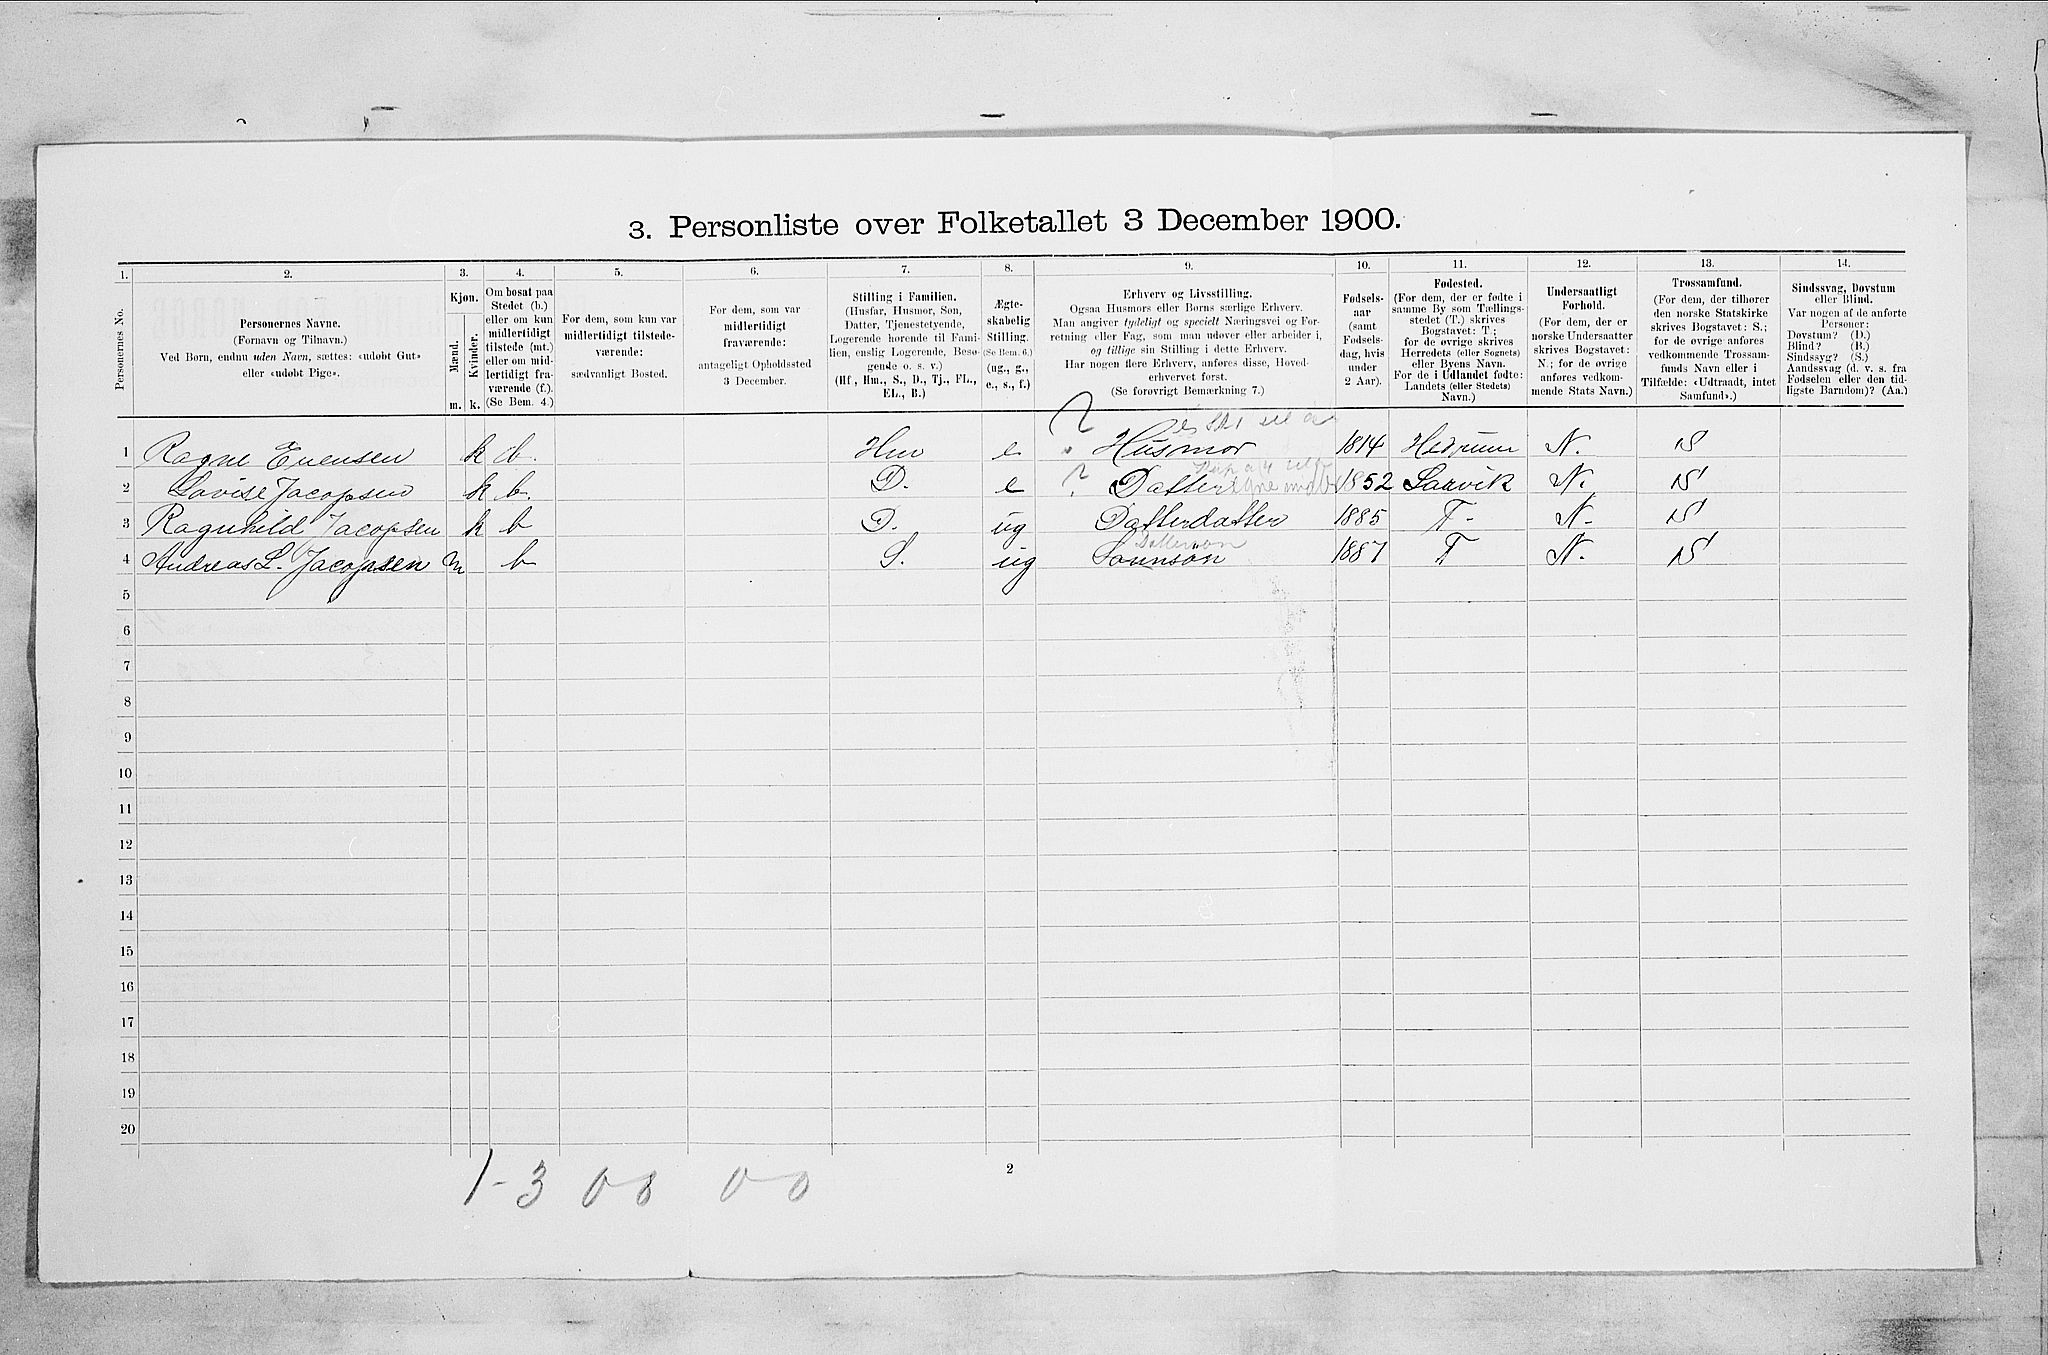 3. Personliste over Folketallet 3 December 1900.
1. 2. 3. 4. 5. 6. 7. 8. 9. 10. 11. 12. 13. 14.
Personernes No.
Personernes Navne.
(Fornavn og Tilnavn.)
Ved Børn, endnu uden Navn, sættes: «udøbt Gut»
eller «udøbt Pige».
Kjøn.
Mænd.
Kvinder.
m. k.
Om bosat paa
Stedet (b.)
eller om kun
midlertidigt
tilstede (mt.)
eller om mid-
lertidigt fra-
værende (f.).
(Se Bem. 4.)
For dem, som kun var
midlertidigt tilstede-
værende:
sædvanligt Bosted.
For dem, som var
midlertidigt
fraværende:
antageligt Opholdssted
3 December.
Stilling i Familien.
(Husfar, Husmor, Søn,
Datter, Tjenestetyende,
Logerende hørende til Fami-
lien, enslig Logerende, Besø-
gende o. s. v.)
(Hf., Hm., S., D., Tj., FL.,
EL., B.)
Ægte-
skabelig
Stilling.
(Se Bem. 6.)
(ug., g.,
e., s., f.)
Erhverv og Livsstilling.
Ogsaa Husmors eller Børns særlige Erhverv.
Man angiver tydeligt og specielt Næringsvei og For-
retning eller Fag, som man udøver eller arbeider i,
og tillige sin Stilling i dette Erhverv.
Har nogen flere Erhverv, anføres disse, Hoved-
erhvervet først.
(Se forøvrigt Bemærkning 7.)
Fødsels-
aar
(samt
Fødsels-
dag, hvis
under
2 Aar).
Fødested.
(For dem, der er fødte i
samme By som Tællings-
stedet (T.) skrives
Bogstavet: T.;
for de øvrige skrives
Herredets (eller Sognets)
eller Byens Navn.
For de i Udlandet fødte:
Landets (eller Stedets)
Navn.)
Undersaatligt
Forhold.
(For dem, der er
norske Undersaatter
skrives Bogstavet:
N.; for de øvrige
anføres vedkom-
mende Stats Navn.)
Trossamfund.
(For dem, der tilhører
den norske Statskirke
skrives Bogstavet: S.;
for de øvrige anføres
vedkommende Trossam-
funds Navn eller i
Tilfælde: «Udtraadt, intet
Samfund».)
Sindssvag, Døvstum
eller Blind.
Var nogen af de anførte
Personer:
Døvstum? (D.)
Blind? (B.)
Sindssyg? (S.)
Aandssvag (d. v. s. fra
Fødselen eller den tid-
ligste Barndom)? (Aa.)
1 Ragne Evensen k b. Hm e ? Husmor 1814 Hedrum N. S
2 Lovise Jacopsen k b. D. e ? Datter 1852 Larvik N. S
3 Ragnhild Jacopsen k b D. ug Datterdatter 1885 T. N. S
Dattersøn
4 Andreas L. Jacopsen m b S. ug Sønnsøn 1887 T N. S
5
6
7
8
9
10
11
12
13
14
15
16
17
18
19
20
1-3 00 0-0
2